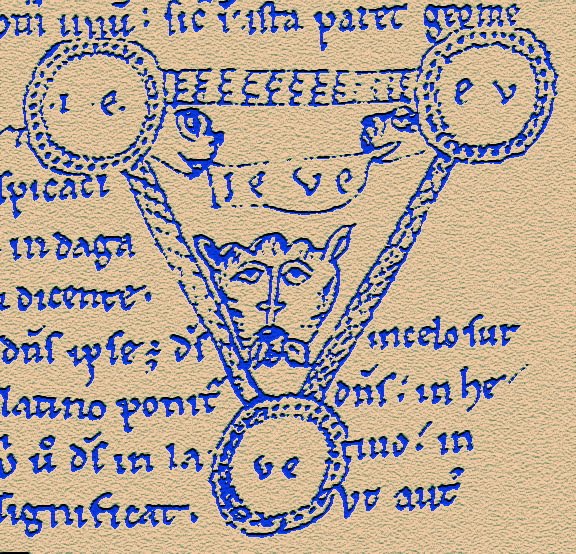 unū: sic ista patet geome
.I. E. E V
IE VE
spicaci
in daga
dicente.
dn̄s ipse; ds̄ in celo sur
latino ponit dn̄s: in he
ds̄ in la tiuo: in
V E
significat. Vt aut̄